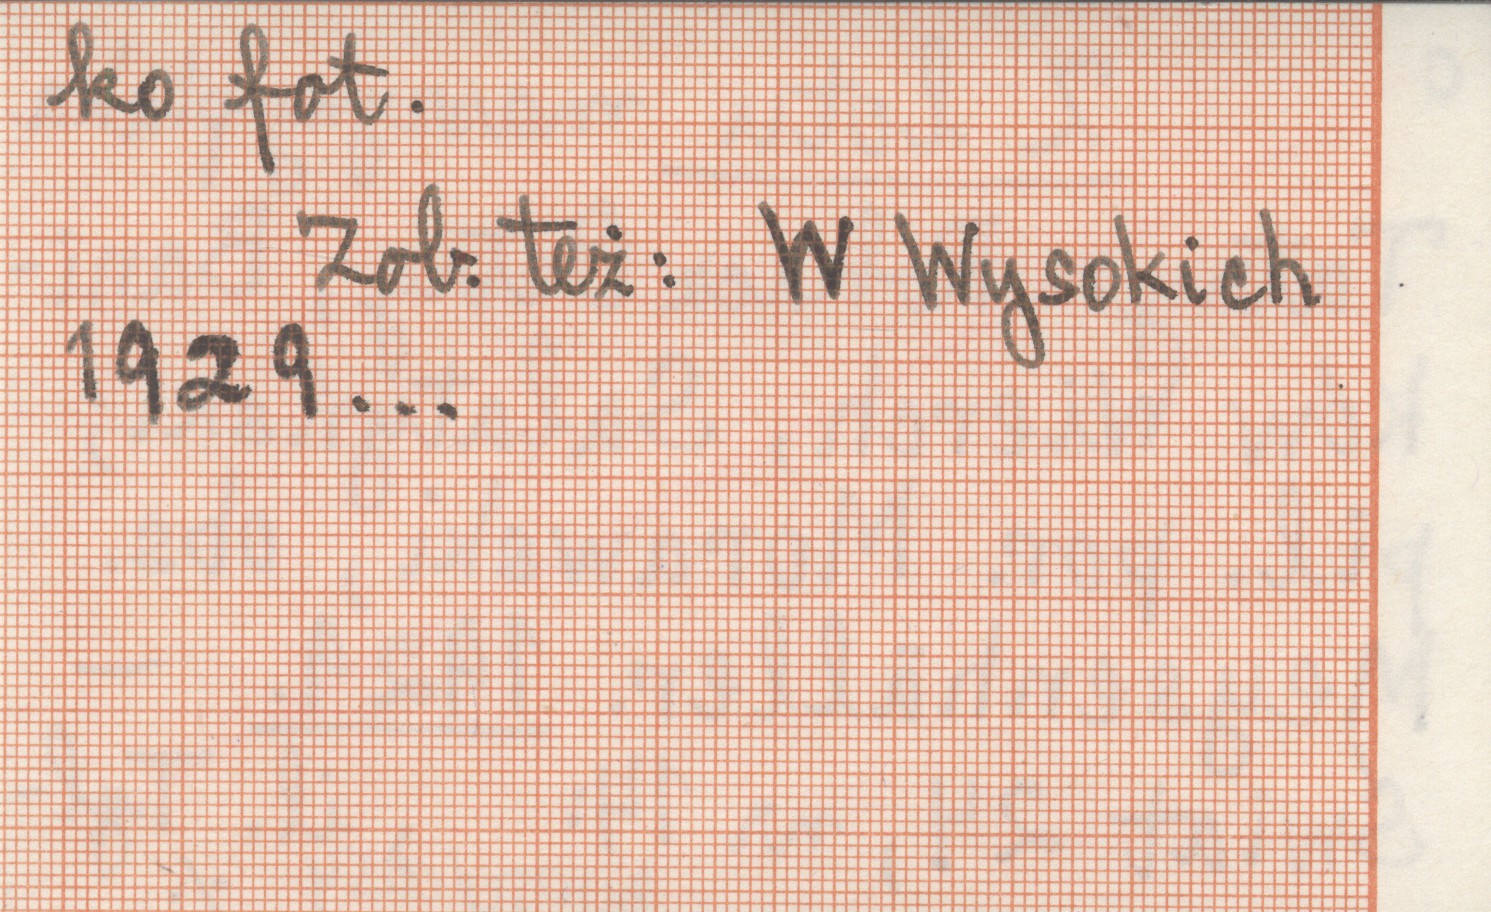 ko fot.
Zob. też: W Wysokich
1929...